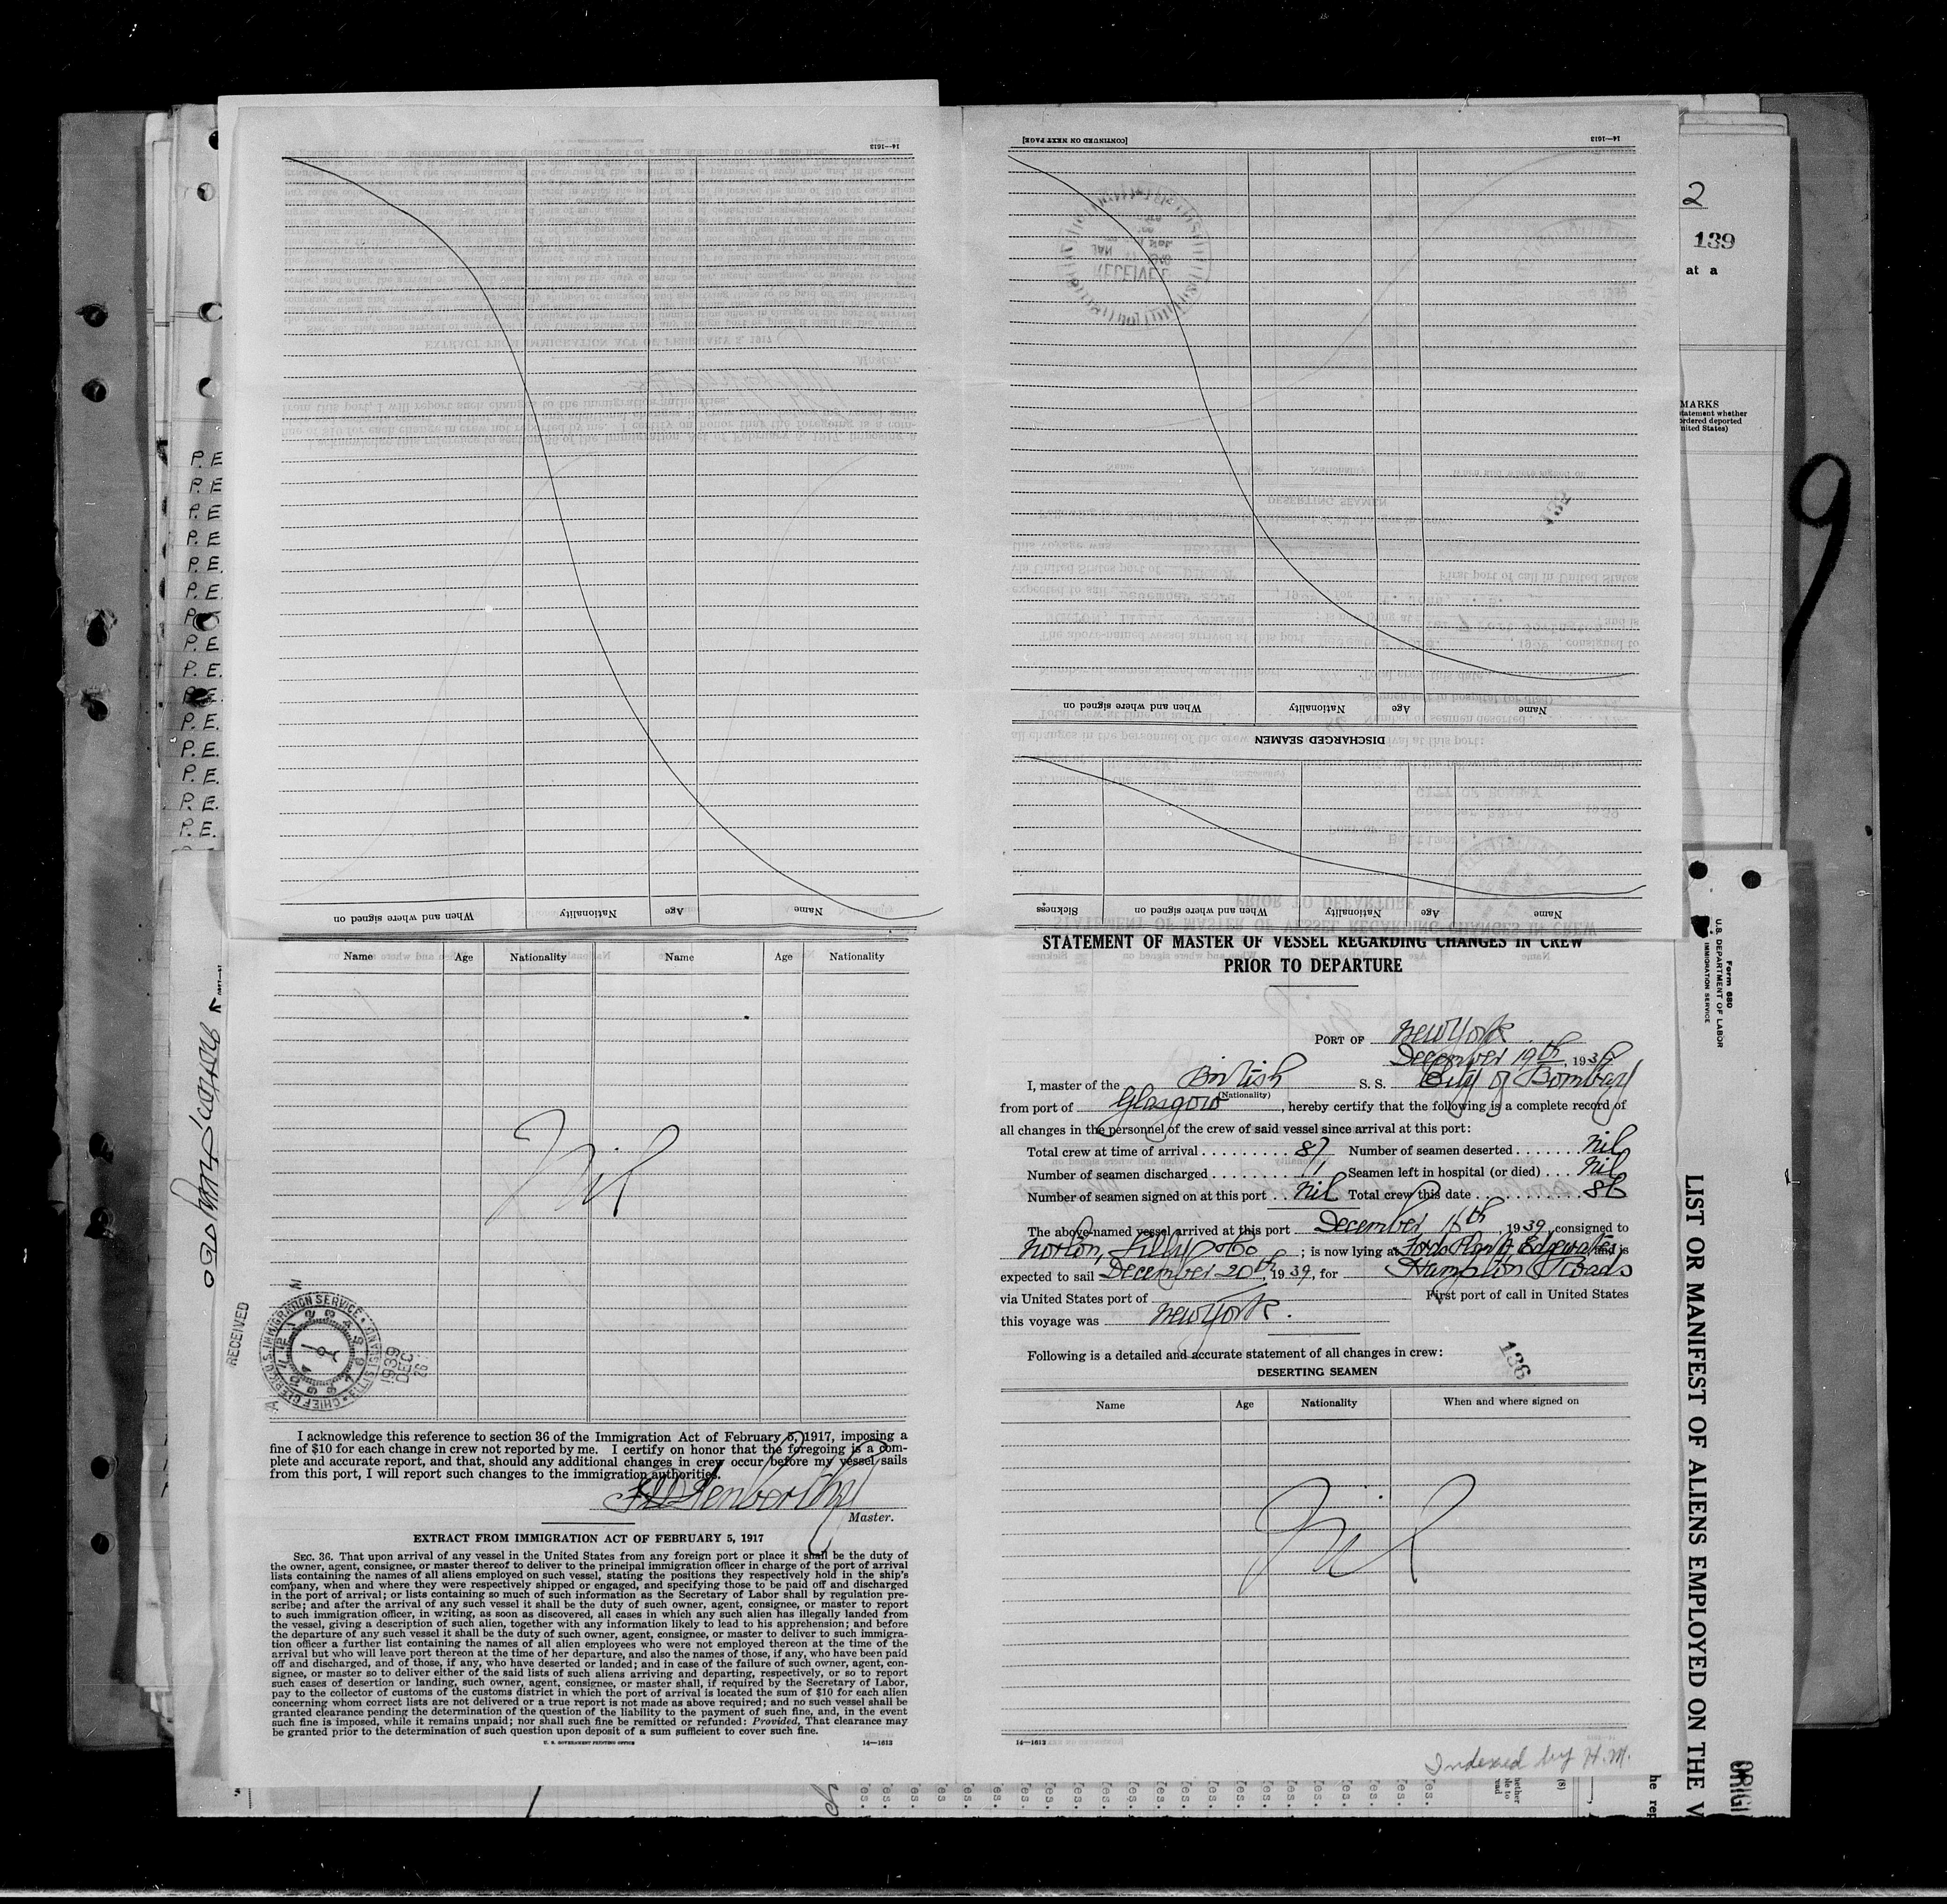 14—1613
When and where signed on Nationality Age Name
[CONTINUED ON NEXT PAGE]
14—1613
RECEIVED
When and where signed on Nationality Age Name
DISCHARGED SEAMEN
Sickness When and where signed on Nationality Age Name
2
139
at a
MARKS
statement whether
ordered deported
nited States)
9
P. E
P. E
P. E
P. E
P. E
P. E
P. E
P. E
P. E.
P. E.
P. E.
P. E.
P. E.
P. E.
Name Age Nationality Name Age Nationality
Nil
RECEIVED
CHIEF CLERK U.S. IMMIGRATION SERVICE ELLIS ISLAND
1939
DEC
26
I acknowledge this reference to section 36 of the Immigration Act of February 5, 1917, imposing a
fine of $10 for each change in crew not reported by me. I certify on honor that the foregoing is a com-
plete and accurate report, and that, should any additional changes in crew occur before my vessel sails
from this port, I will report such changes to the immigration authorities.
Master.
EXTRACT FROM IMMIGRATION ACT OF FEBRUARY 5, 1917
SEC. 36. That upon arrival of any vessel in the United States from any foreign port or place it shall be the duty of
the owner, agent, consignee, or master thereof to deliver to the principal immigration officer in charge of the port of arrival
lists containing the names of all aliens employed on such vessel, stating the positions they respectively hold in the ship's
company, when and where they were respectively shipped or engaged, and specifying those to be paid off and discharged
in the port of arrival; or lists containing so much of such information as the Secretary of Labor shall by regulation pre-
scribe; and after the arrival of any such vessel it shall be the duty of such owner, agent, consignee, or master to report
to such immigration officer, in writing, as soon as discovered, all cases in which any such alien has illegally landed from
the vessel, giving a description of such alien, together with any information likely to lead to his apprehension; and before
the departure of any such vessel it shall be the duty of such owner, agent, consignee, or master to deliver to such immigra-
tion officer a further list containing the names of all alien employees who were not employed thereon at the time of the
arrival but who will leave port thereon at the time of her departure, and also the names of those, if any, who have been paid
off and discharged, and of those, if any, who have deserted or landed; and in case of the failure of such owner, agent, con-
signee, or master so to deliver either of the said lists of such aliens arriving and departing, respectively, or so to report
such cases of desertion or landing, such owner, agent, consignee, or master shall, if required by the Secretary of Labor,
pay to the collector of customs of the customs district in which the port of arrival is located the sum of $10 for each alien
concerning whom correct lists are not delivered or a true report is not made as above required; and no such vessel shall be
granted clearance pending the determination of the question of the liability to the payment of such fine, and, in the event
such fine is imposed, while it remains unpaid; nor shall such fine be remitted or refunded: Provided, That clearance may
be granted prior to the determination of such question upon deposit of a sum sufficient to cover such fine.
U. S. GOVERNMENT PRINTING OFFICE 14—1613
STATEMENT OF MASTER OF VESSEL REGARDING CHANGES IN CREW
PRIOR TO DEPARTURE
PORT OF New York
December 19th, 1939
I, master of the British S. S. City of Bombay
(Nationality)
from port of Glasgow, hereby certify that the following is a complete record of
all changes in the personnel of the crew of said vessel since arrival at this port:
Total crew at time of arrival 87 Number of seamen deserted nil
Number of seamen discharged 1 Seamen left in hospital (or died) nil
Number of seamen signed on at this port nil Total crew this date 86
The above-named vessel arrived at this port December 16th, 1939, consigned to
Norton, Lilly & Co; is now lying at Fords Plant, Edgewater and is
expected to sail December 20th, 1939, for Hampton Roads
via United States port of First port of call in United States
this voyage was New York.
Following is a detailed and accurate statement of all changes in crew:
136
DESERTING SEAMEN
Name Age Nationality When and where signed on
Nil
14—1613
Indexed by H.M.
Form 680
U.S. DEPARTMENT OF LABOR
IMMIGRATION SERVICE
LIST OR MANIFEST OF ALIENS EMPLOYED ON THE V
ORIGI
he rep
(8)